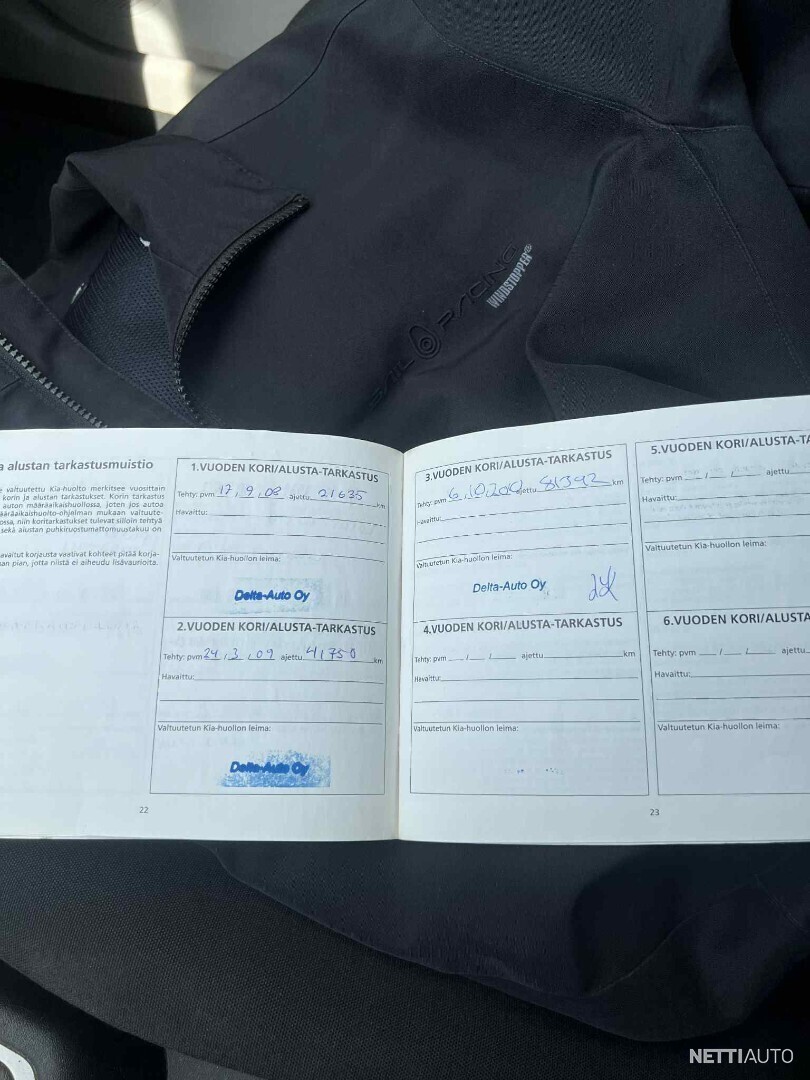 SAIL RACING
WINDSTOPPER®
a alustan tarkastusmuistio
valtuutettu Kia-huolto merkitsee vuosittain
korin ja alustan tarkastukset. Korin tarkastus
auton määräaikaishuollossa, joten jos autoa
määräaikaishuolto-ohjelman mukaan valtuute-
ossa, niin koritarkastukset tulevat silloin tehtyä
sekä alustan puhkiruostumattomuustakuu on
avaitut korjausta vaativat kohteet pitää korja-
an pian, jotta niistä ei aiheudu lisävaurioita.
1.VUODEN KORI/ALUSTA-TARKASTUS
Tehty: pvm 17.9.08 ajettu 21635 km
Havaittu:
Valtuutetun Kia-huollon leima:
Delta-Auto Oy
2.VUODEN KORI/ALUSTA-TARKASTUS
Tehty: pvm 24.3.09 ajettu 41750 km
Havaittu:
Valtuutetun Kia-huollon leima:
Delta-Auto Oy
22
3.VUODEN KORI/ALUSTA-TARKASTUS
Tehty: pvm 6.10.2010 ajettu 81392 km
Havaittu:
Valtuutetun Kia-huollon leima:
Delta-Auto Oy
4.VUODEN KORI/ALUSTA-TARKASTUS
Tehty: pvm / / ajettu km
Havaittu:
Valtuutetun Kia-huollon leima:
5.VUODEN KORI/ALUSTA-TA
Tehty: pvm / / ajettu
Havaittu:
Valtuutetun Kia-huollon leima:
6.VUODEN KORI/ALUSTA
Tehty: pvm / / ajettu
Havaittu:
Valtuutetun Kia-huollon leima:
23
NETTIAUTO